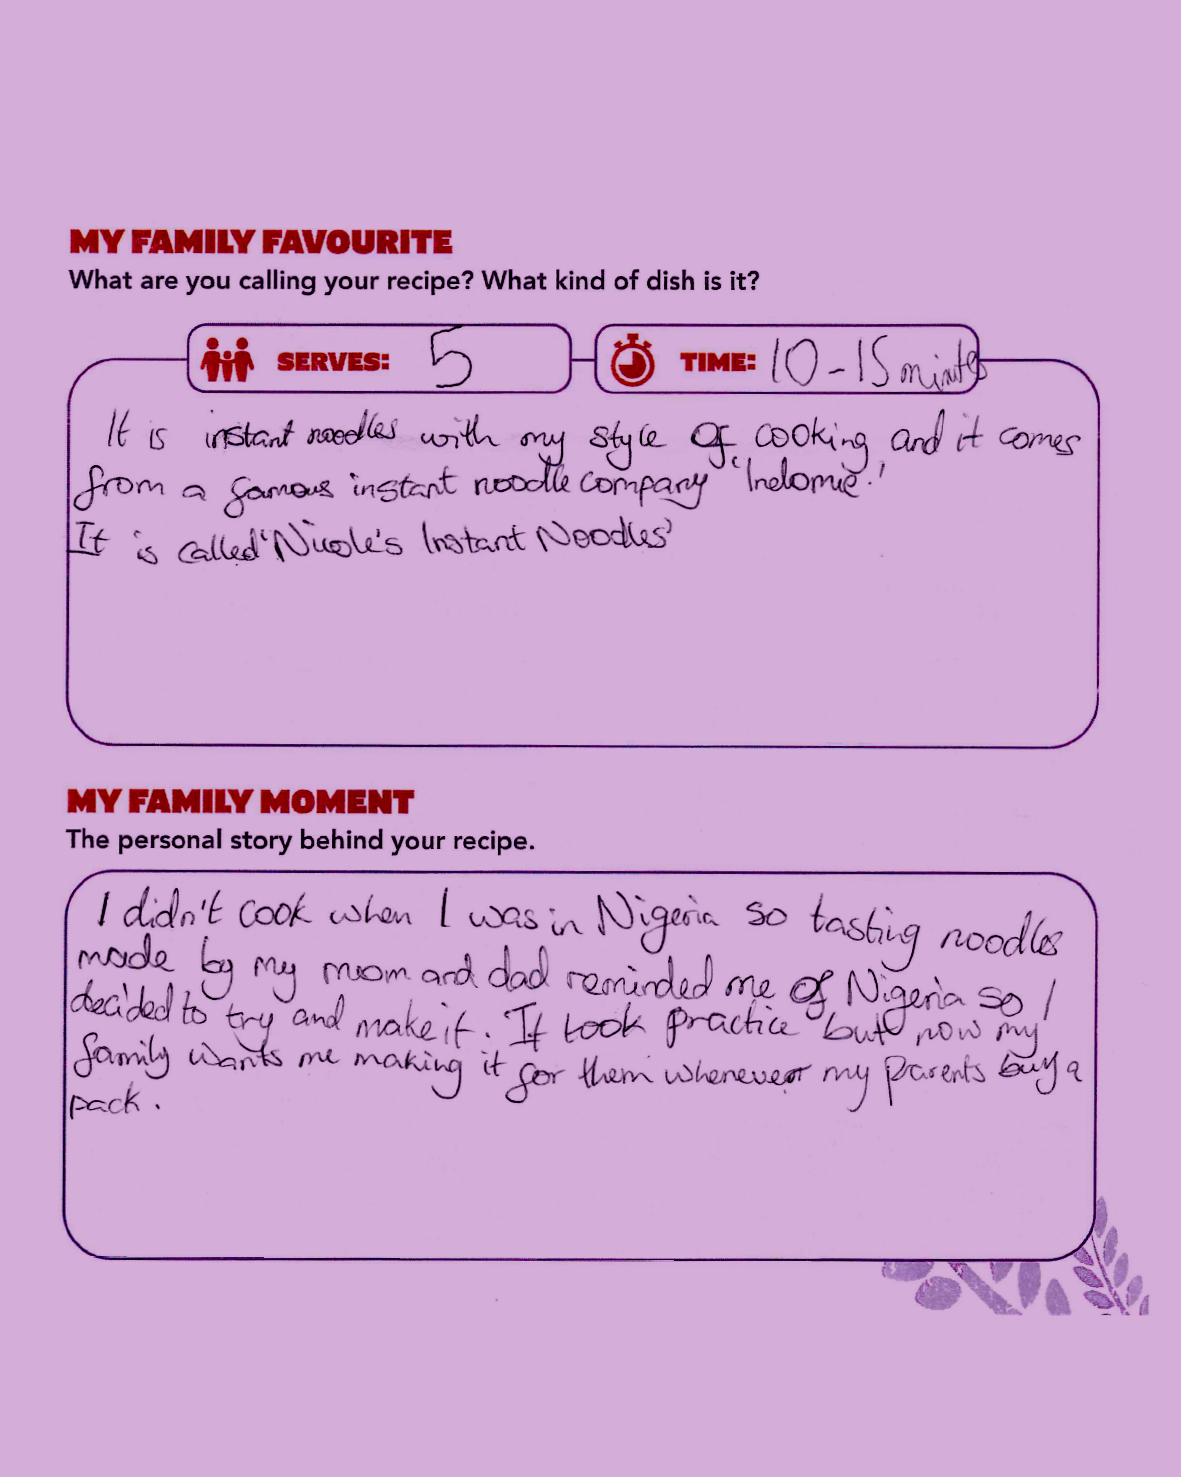 MY FAMILY FAVOURITE
What are you calling your recipe? What kind of dish is it?
SERVES: 5
TIME: 10-15 minutes
It is instant noodles with my style of cooking and it comes
from a famous instant noodle company 'Indomie.'
It is called 'Nicole's Instant Noodles'
MY FAMILY MOMENT
The personal story behind your recipe.
I didn't cook when I was in Nigeria so tasting noodles
made by my mom and dad reminded me of Nigeria so I
decided to try and make it. It took practice but now my
family wants me making it for them whenever my parents buy a
pack.